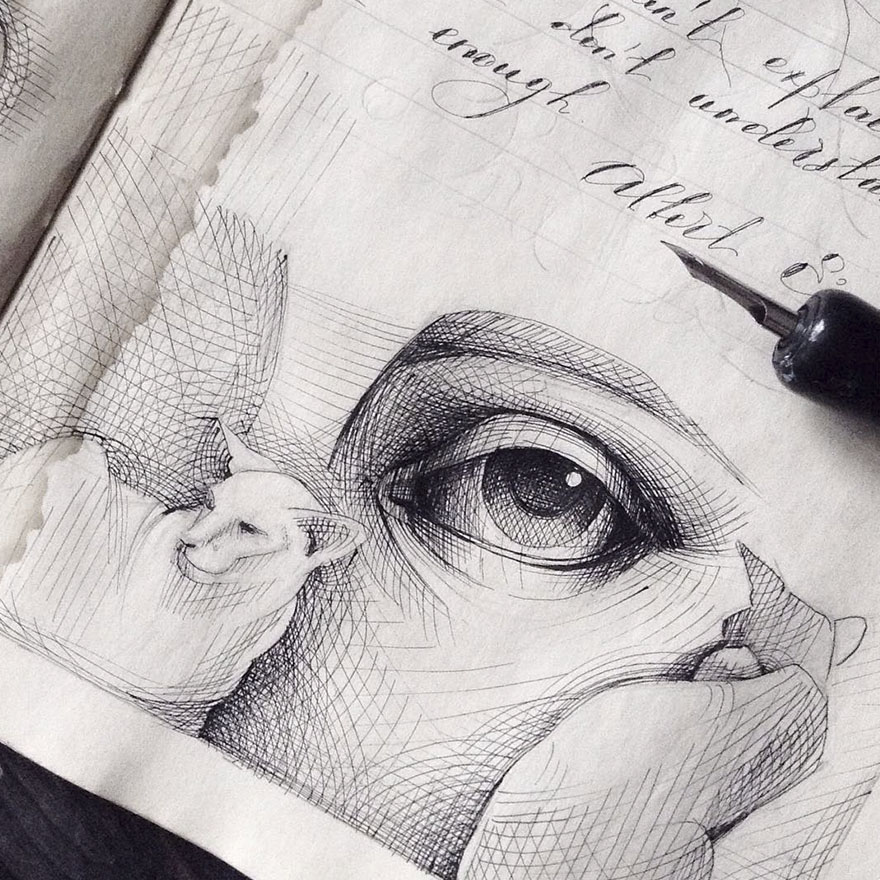 n't explai
don't understa
enough
Albert